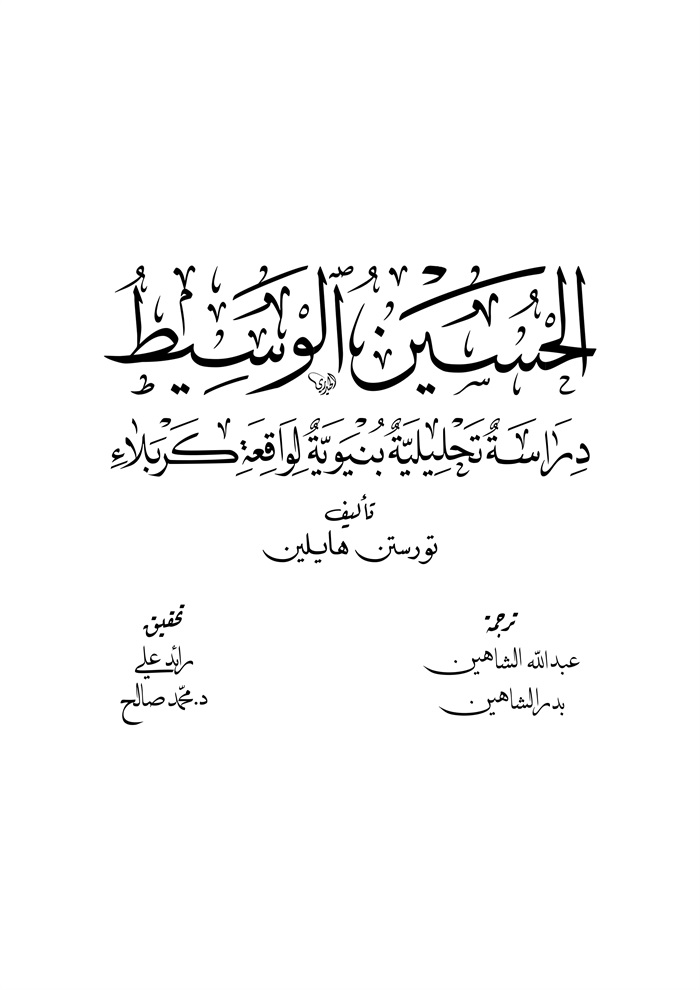 الحُسَيْن الوَسِيطُ
دِرَاسَةٌ تَحْلِيلِيَّةٌ بُنْيَوِيَّةٌ لِوَاقِعَةِ كَرْبَلَاءِ
تأليف
تورستن هايلين
ترجمة
عبدالله الشاهين
بدر الشاهين
تحقيق
رائد علي
د.محمّد صالح